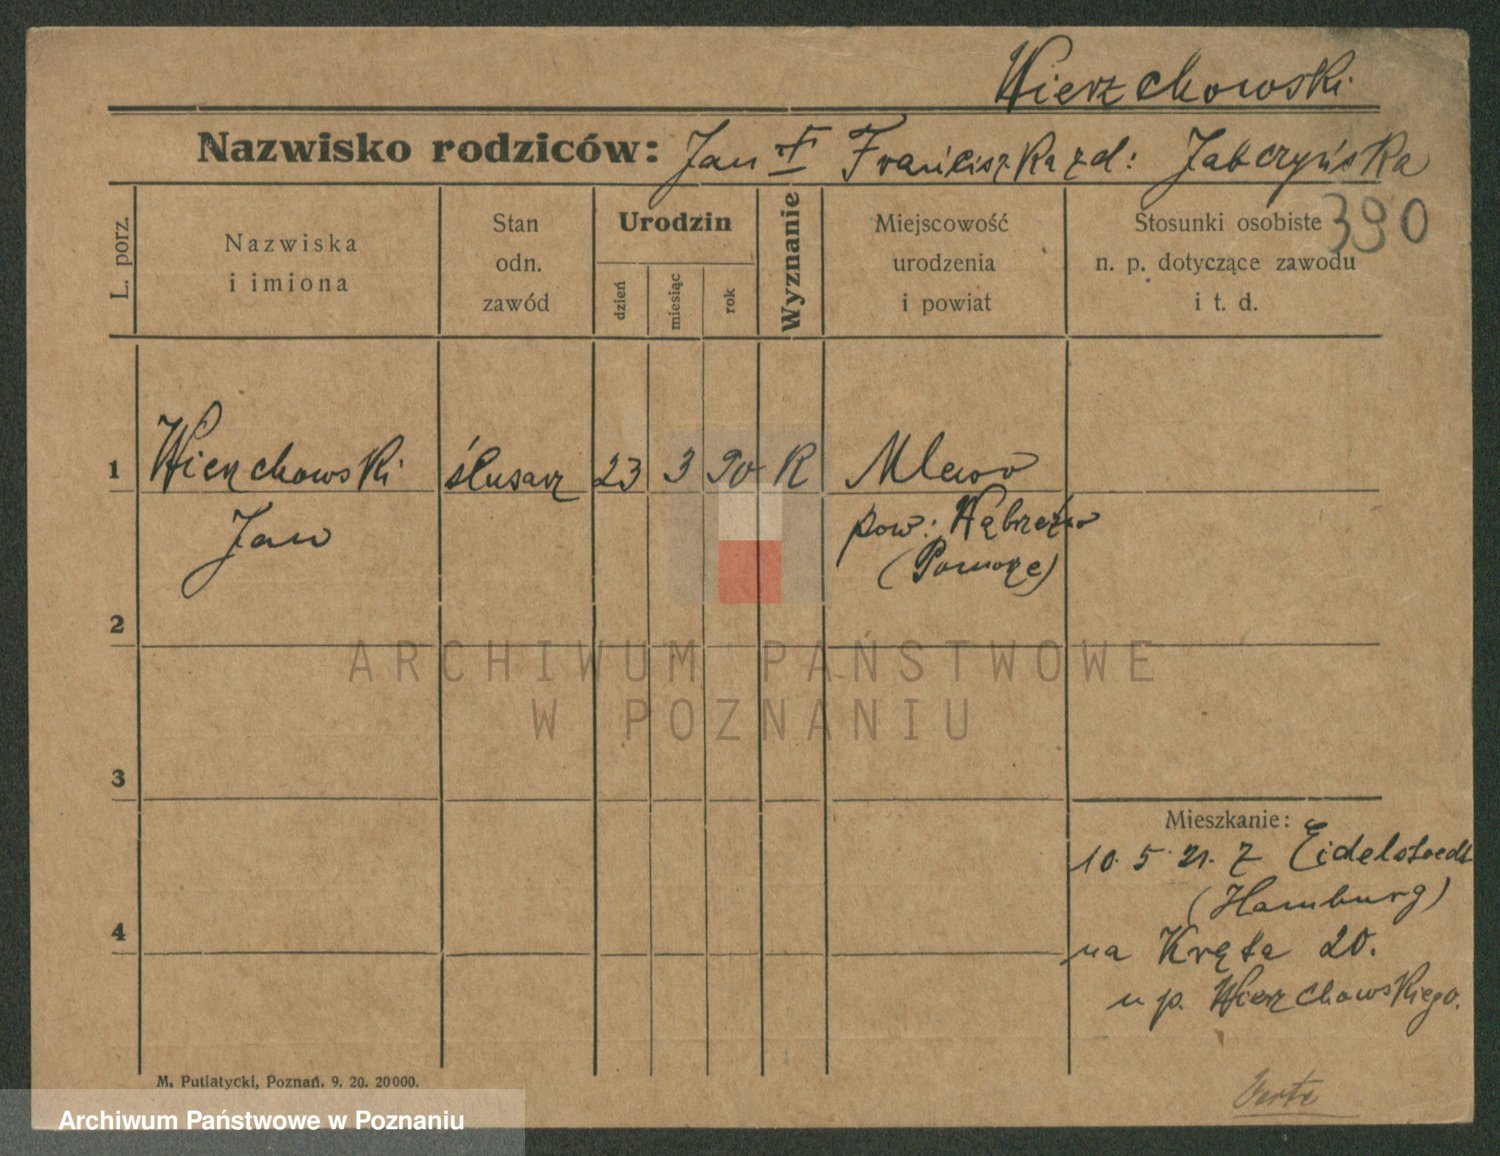 Wierzchowski
Nazwisko rodziców: Jan + Franciszka zd: Jabczyńska
390
L. porz.
Nazwiska
i imiona
Stan
odn.
zawód
Urodzin
dzień
miesiąc
rok
Wyznanie
Miejscowość
urodzenia
i powiat
Stosunki osobiste
n. p. dotyczące zawodu
i t. d.
1
Wierzchowski
ślusarz
23
3
90
R
Mlewo
Jan
pow: Wąbrzeźno
(Pomorze)
2
3
4
Mieszkanie:
10. 5. 21. z Eidelstaedt
(Hamburg)
na Kręta 20.
u p. Wierzchowskiego.
M. Putiatycki, Poznań. 9. 20. 20000.
ARCHIWUM PAŃSTWOWE
W POZNANIU
Archiwum Państwowe w Poznaniu